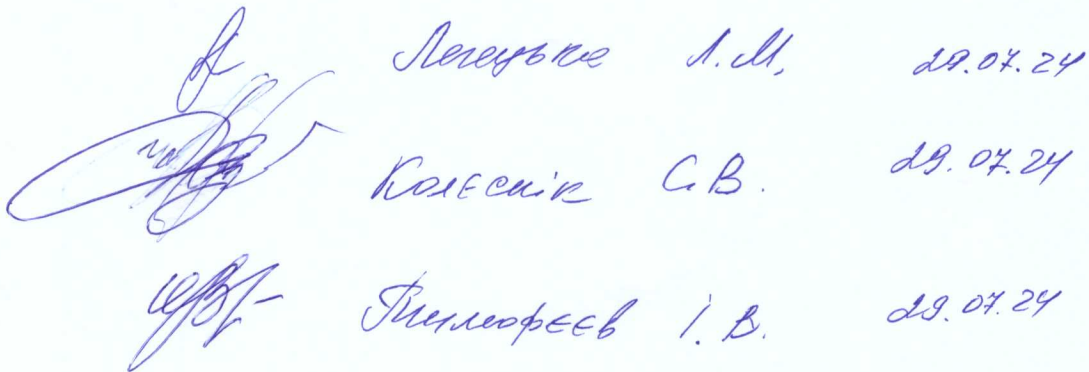 Л.М. 29.07.24
Колєснік С.В. 29.07.24
Тимофєєв І.В. 29.07.24